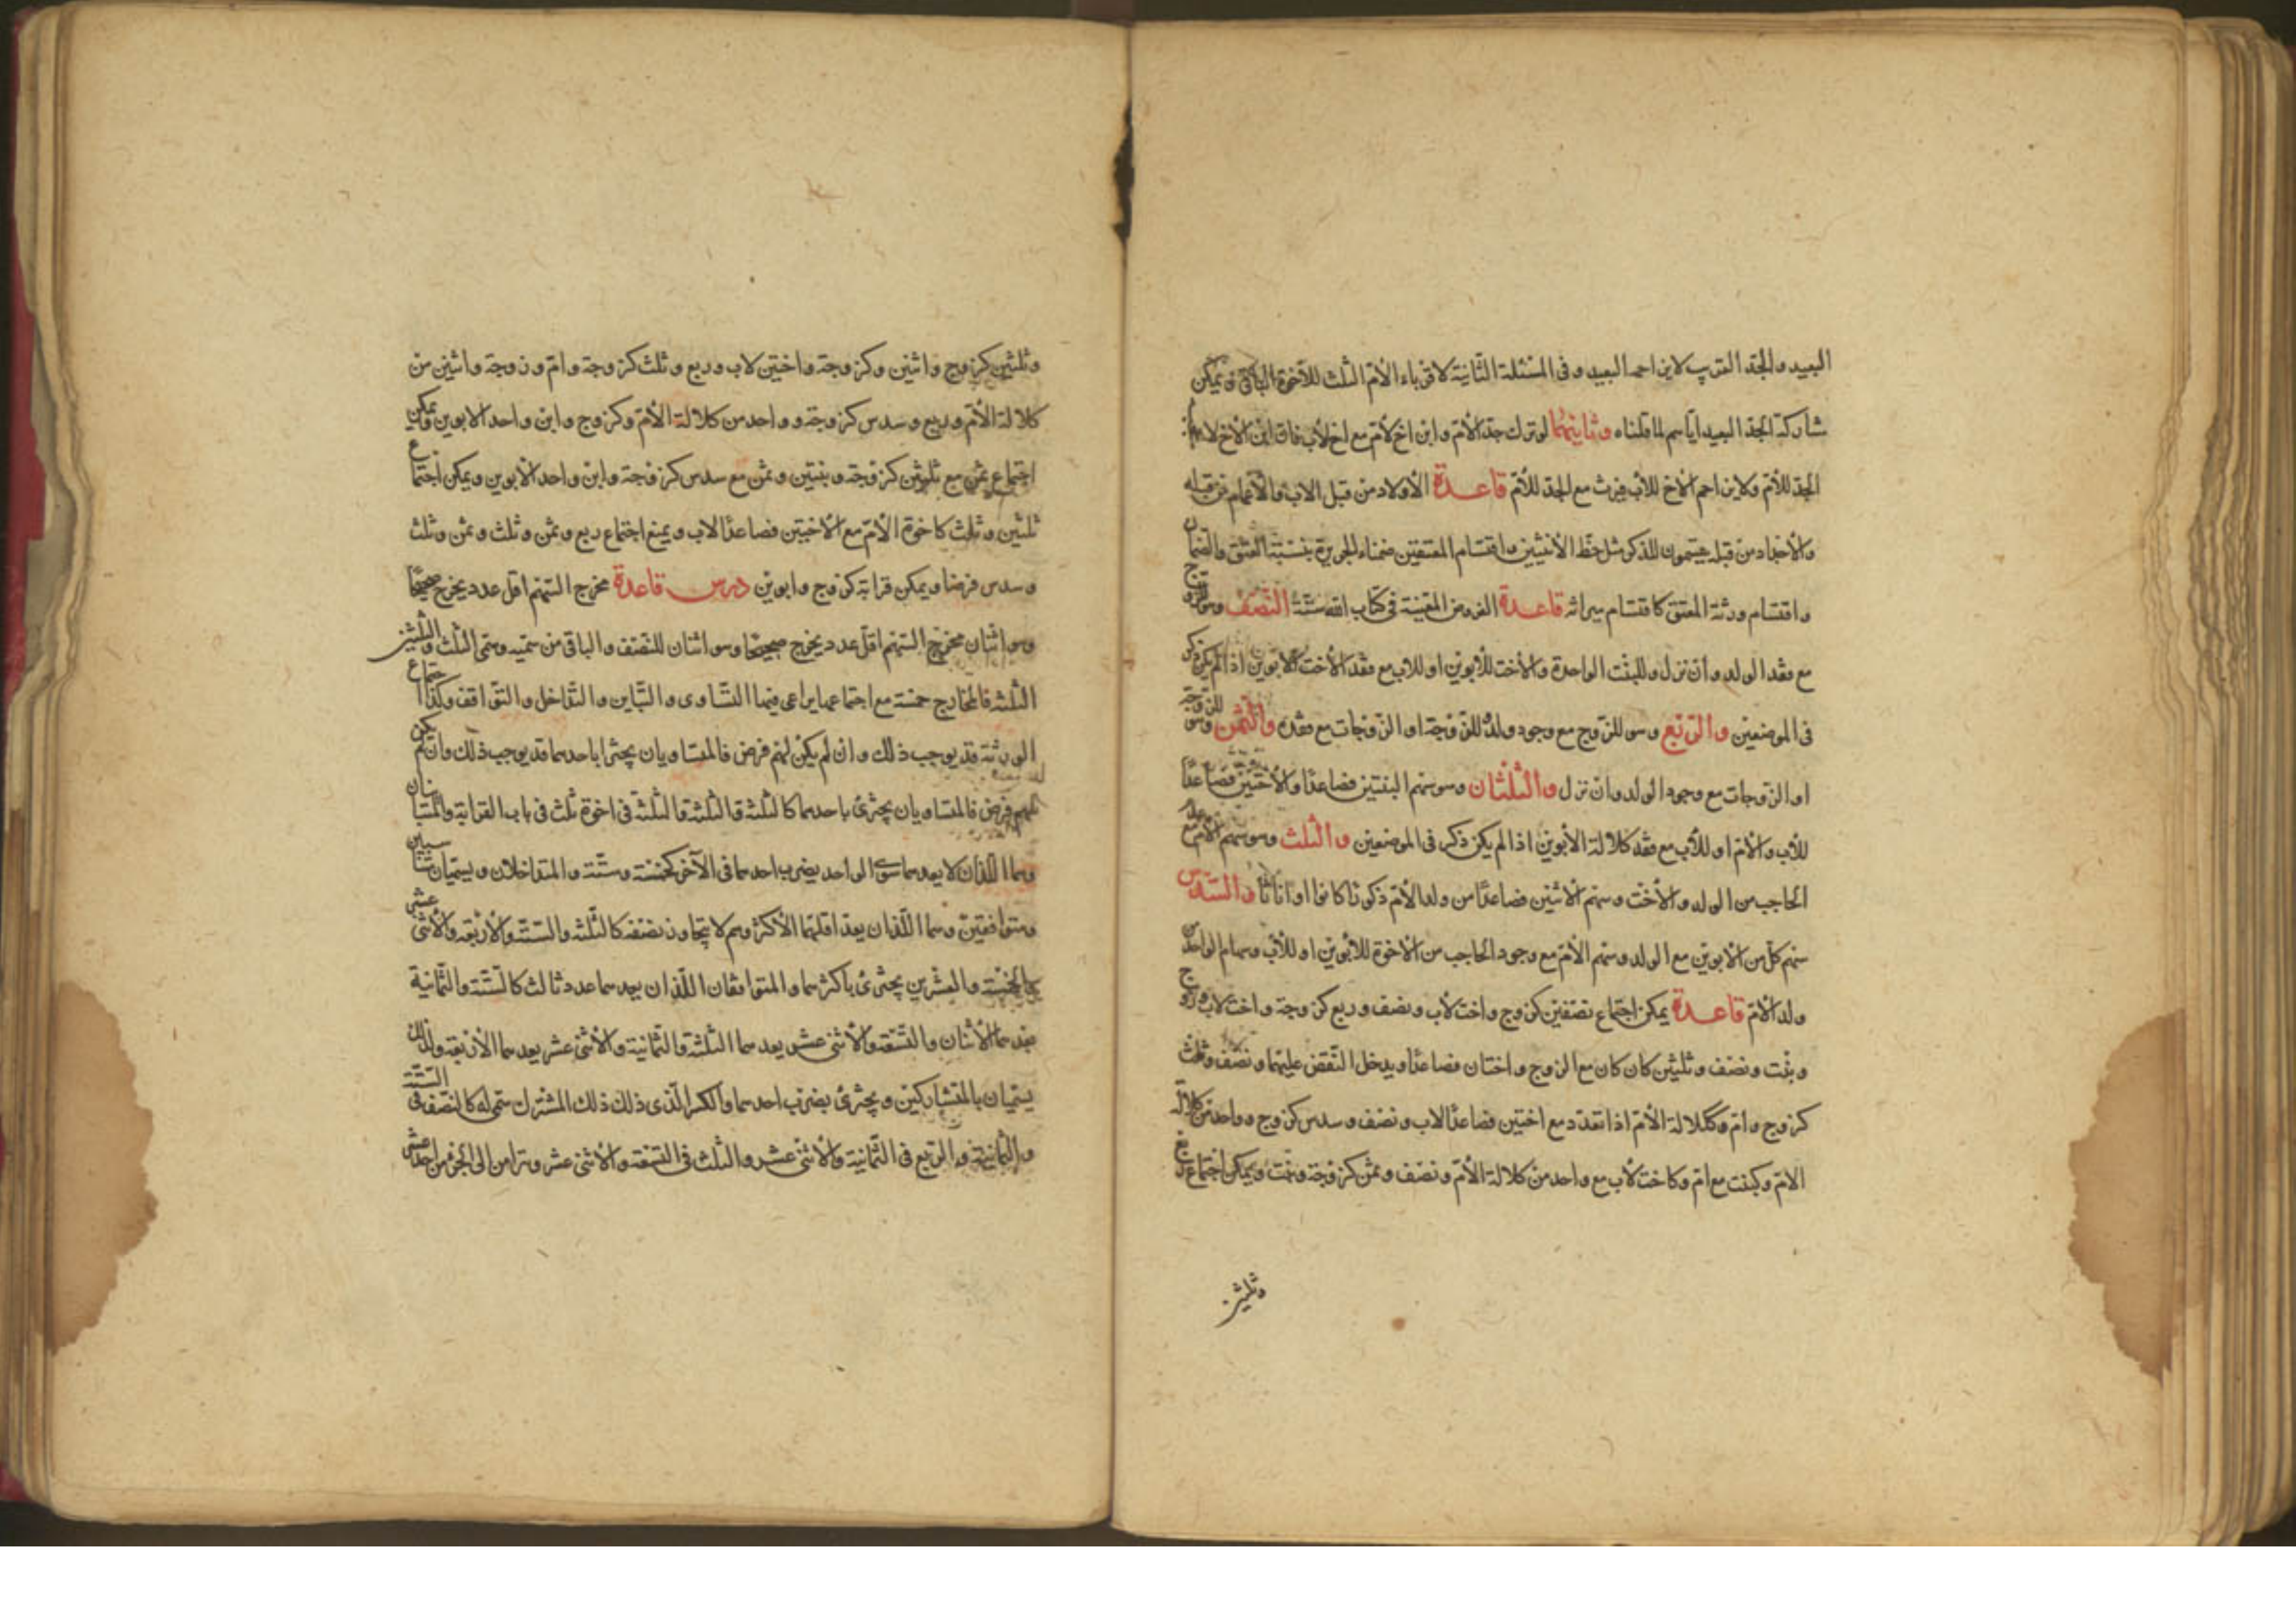 البعيد والجد القريب لابن اخيه البعيد وفى المسئلة الثانية لاقرباء الأم الثلث للاخوة الباقى ويمكن
شاركة الجد البعيد اياهم لما قلناه وثانيهما لو ترك جد الأم وابن اخ لأم مع اخ لأب فان ابن الأخ لا
الجد للأم ولابن احم الأخ للأب فيرث مع الجد للأم قاعدة الأولاد من قبل الاب والأعمام من قبله
والأجداد من قبله يقتسمون للذكر مثل حظ الأنثيين واقتسام المعتقين ضمناء الجريرة بنسبة العتق والضمان
واقتسام ورثة المعتق كاقتسام ميراثه قاعدة الفروض المعينة فى كتاب الله ستة النصف وهو للزوج
مع فقد الولد وان نزل وللبنت الواحدة والأخت للأبوين او للاب مع فقد الأخت للأبوين اذا لم يكن ذكر
فى الموضعين والربع وهو للزوج مع وجود ولد للزوجة او الزوجات مع فقده والثمن وهو للزوجة
او الزوجات مع وجود الولد وان نزل والثلثان وهو سهم البنتين فصاعدا والأختين فصاعدا
للأب والأم او للأب مع فقد كلالة الأبوين اذا لم يكن ذكر فى الموضعين والثلث وهو سهم الأم مع عدم
الحاجب من الولد والأخت وسهم الاثنين فصاعدا من ولد الأم ذكورا كانوا او اناثا والسدس
سهم كل من الأبوين مع الولد وسهم الأم مع وجود الحاجب من الاخوة للأبوين او للأب وسهام الواحد من
ولد الأم قاعدة يمكن اجتماع نصفين كزوج واخت لأب ونصف وربع كزوجة واخت لاب وزوج
وبنت ونصف وثلثين كان كان مع الزوج واختان فصاعدا ويدخل النقص عليهما ونصف وثلث
كزوج وام وككلالة الأم اذا تعدد مع اختين فصاعدا لاب ونصف وسدس كزوج وواحد من كلالة
الام وكبنت مع ام وكاخت لأب مع واحد من كلالة الأم ونصف وثمن كزوجة وبنت ويمكن اجتماع ربع
وثلثين
وثلثين كزوج واثنين وكزوجة واختين لاب وربع وثلث كزوجة وام وزوجة واثنين من
كلالة الأم وربع وسدس كزوجة وواحد من كلالة الأم وكزوج وابن واحد الابوين ويمكن
اجتماع ثمن مع ثلثين كزوجة وبنتين وثمن مع سدس كزوجة وابن واحد الأبوين ويمكن اجتماع
ثلثين وثلث كاخوة الأم مع الأختين فصاعدا لاب ويمنع اجتماع ربع وثمن وثلث وثمن وثلث
وسدس فرضا ويمكن قرابة كزوج وابوين درس قاعدة مخرج السهم اقل عدد يخرج صحيحا
وهو اثنان مخرج السهم اقل عدد يخرج صحيحا وهو اثنان للنصف والباقى من سميه وسمى الثلث والثلثين
الثلثة فالمخارج خمسة مع اجتماعها يراعى فيها التساوى والتباين والتداخل والتوافق وكذا اجتماع
الورثة قد يوجب ذلك وان لم يكن لهم فرض فالمتساويان يجتزا باحدهما قد يوجب ذلك وان لم يكن
لهم فرض فالمتساويان يجتزئ باحدهما كالثلثة والثلثة فالثلثة فى اخوة ثلث فى باب القرابة والمتباينان
وهما اللذان لا يعدهما سوى الواحد يضرب احدهما فى الآخر كخمسة وستة والمتداخلان ويسميان متناسبين
ومتوافقين وهما اللذان يعد اقلهما الأكثر وهم لا يتجاوز نصفه كالثلثة والستة والأربعة والأثنى عشر
كالخمسة والعشرين يجتزئ باكثرهما والمتوافقان اللذان يعدهما عدد ثالث كالستة والثمانية
يعدهما الأثنان والتسعة والأثنى عشر يعدهما الثلثة والثمانية والأثنى عشر يعدهما الأربعة ولذلك
يسميان بالمتشاركين ويجتزئ بضرب احدهما والكسر الذى ذلك ذلك المشترك سمى له كالنصف فى الستة
والثمانية والربع فى الثمانية والأثنى عشر والثلث فى التسعة والأثنى عشر وترامى الى الجزء من احد عشر